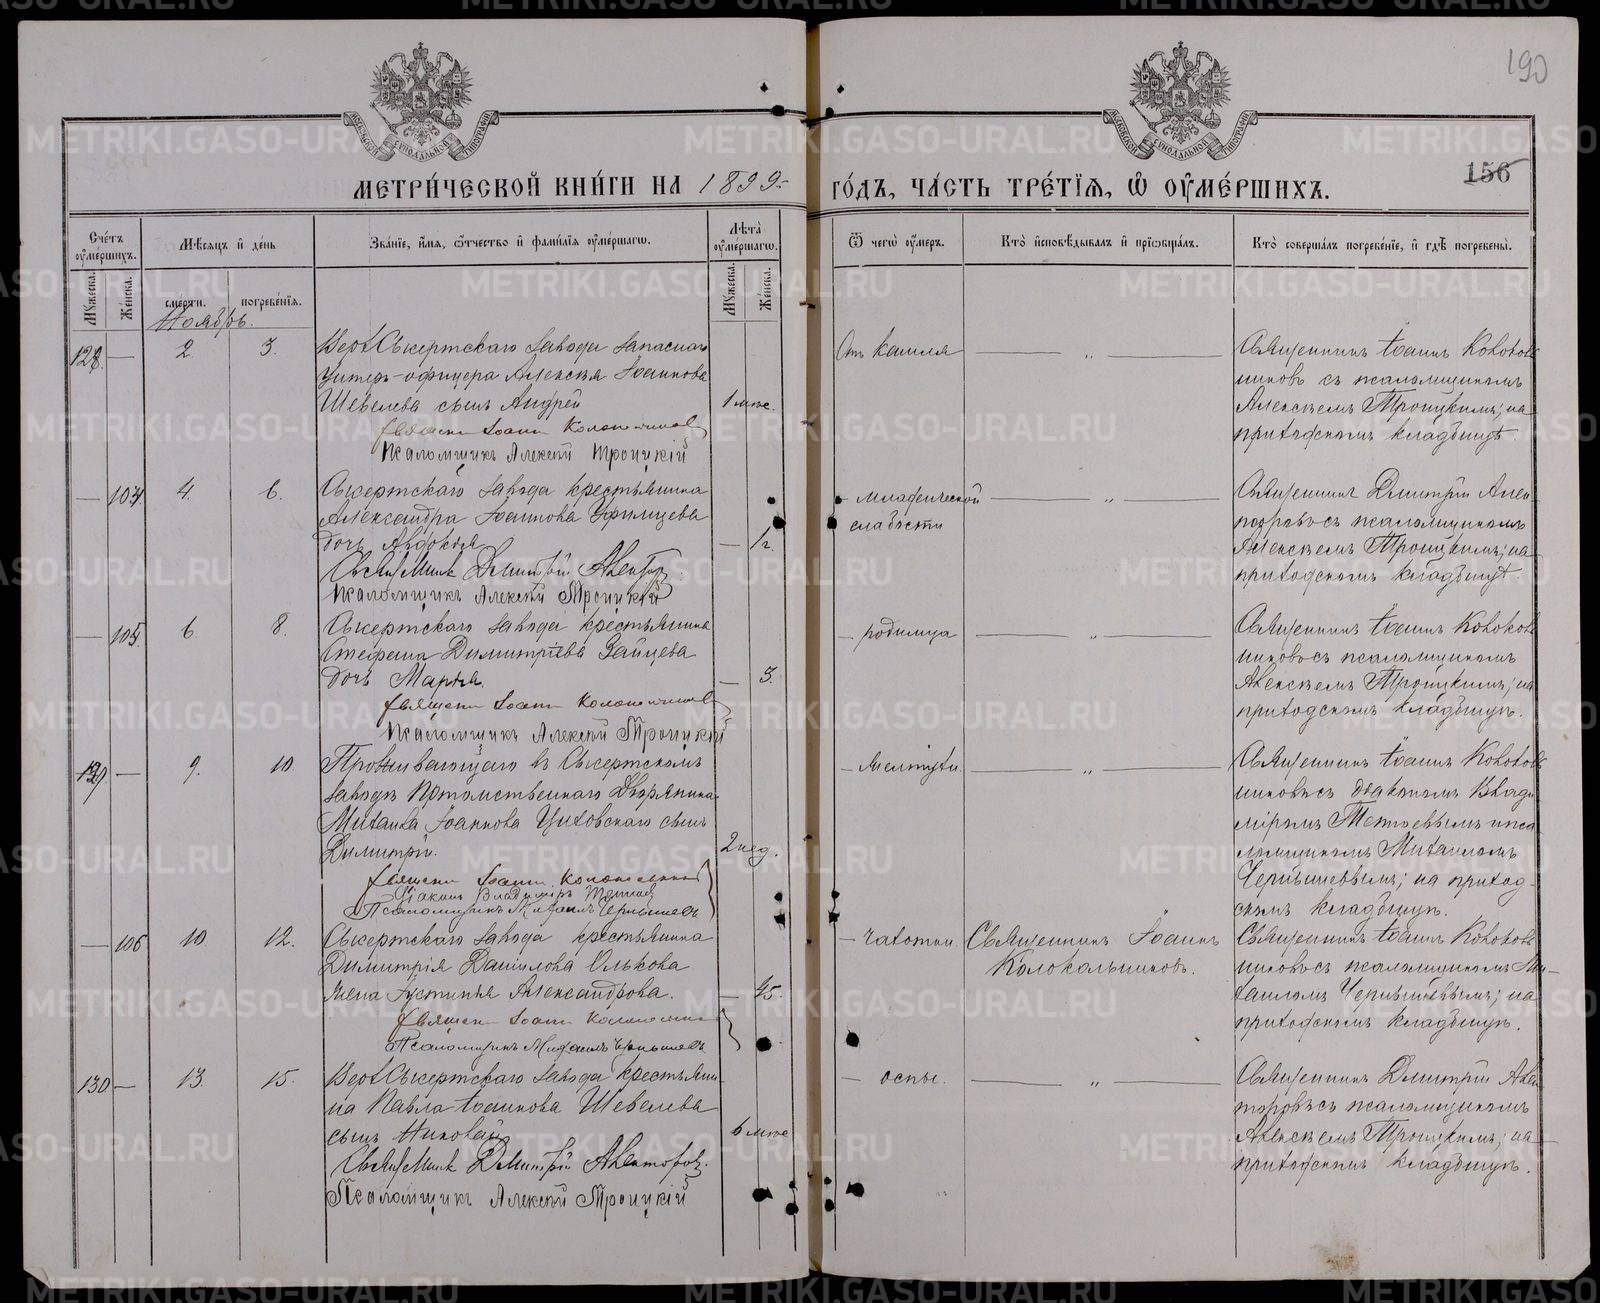 190
156
МЕТРИ́ЧЕСКОЙ КНИ́ГИ НА 1899.
ГО́ДЪ, ЧА́СТЬ ТРЕ́ТІЯ, Ѽ ОУМЕ́РШИХЪ.
Сче́тъ оумершихъ.
Мужеска.
Же́нска.
Мѣсяцъ и де́нь
сме́рти.
погребе́нія.
Зва́ніе, и́мя, ѻ҆́тчество и фами́лія оуме́ршагѡ.
Лѣта̀ оуме́ршагѡ.
Мужеска.
Же́нска.
Ѿ чегѡ̀ оу́меръ.
Кто̀ исповѣ́дывалъ и прїѡбща́лъ.
Кто̀ соверша́лъ погребе́ніе, и гдѣ̀ погребены̀.
Ноябрь.
128. — 2. 3.
Верхсысертскаго завода запаснаго
унтеръ-офицера Алексѣя Іоаннова
Шевелева сынъ Андрей
1 мѣс.
Священн. Іоаннъ Колокольниковъ
Псаломщикъ Алексѣй Троицкій
Отъ кашля
Священникъ Іоаннъ Коколь
никовъ съ псаломщикомъ
Алексѣемъ Троицкимъ; на
приходскомъ кладбищѣ.
— 104 4. 6.
Сысертскаго завода крестьянина
Александра Іоаннова
дочь Авдокія
— 1 г.
Священникъ Димитрій
Псаломщикъ Алексѣй Троицкій
— младенческой
слабости
Священникъ Димитрій
съ псаломщикомъ
Алексѣемъ Троицкимъ; на
приходскомъ кладбищѣ.
— 105. 6. 8.
Сысертскаго завода крестьянина
Стефана Димитріева Зайцева
дочь Марѳа.
— 3.
Священн. Іоаннъ Колокольниковъ
Псаломщикъ Алексѣй Троицкій
— родимца
Священникъ Іоаннъ Колоколь
никовъ съ псаломщикомъ
Алексѣемъ Троицкимъ; на
приходскомъ кладбищѣ.
129 — 9. 10
Проживающаго въ Сысертскомъ
заводѣ потомственнаго дворянина
Михаила Іоаннова сынъ
Димитрій.
2 нед.
Священн. Іоаннъ Колокольниковъ
Діаконъ Владиміръ
Псаломщикъ Михаилъ Чернышевъ
Священникъ Іоаннъ Колоколь
никовъ съ діакономъ Влади
міромъ и пса
ломщикомъ Михаиломъ
Чернышевымъ; на приход-
скомъ кладбищѣ.
— 106 10 12.
Сысертскаго завода крестьянина
Димитрія Даніилова Олькова
жена Іустинья Александрова.
— 45.
Священн. Іоаннъ Колокольниковъ
Псаломщикъ Михаилъ Чернышевъ
— чахотки.
Священникъ Іоаннъ
Колокольниковъ.
Священникъ Іоаннъ Колоколь
никовъ съ псаломщикомъ Ми-
хаиломъ Чернышевымъ; на
приходскомъ кладбищѣ.
130 — 13. 15.
Верхсысертскаго завода крестьяни-
на Павла Іоаннова Шевелева
сынъ Николай
6 мѣс
Священникъ Димитрій
Псаломщикъ Алексѣй Троицкій
— оспы.
Священникъ Димитрій
съ псаломщикомъ
Алексѣемъ Троицкимъ; на
приходскомъ кладбищѣ.
METRIKI.GASO-URAL.RU